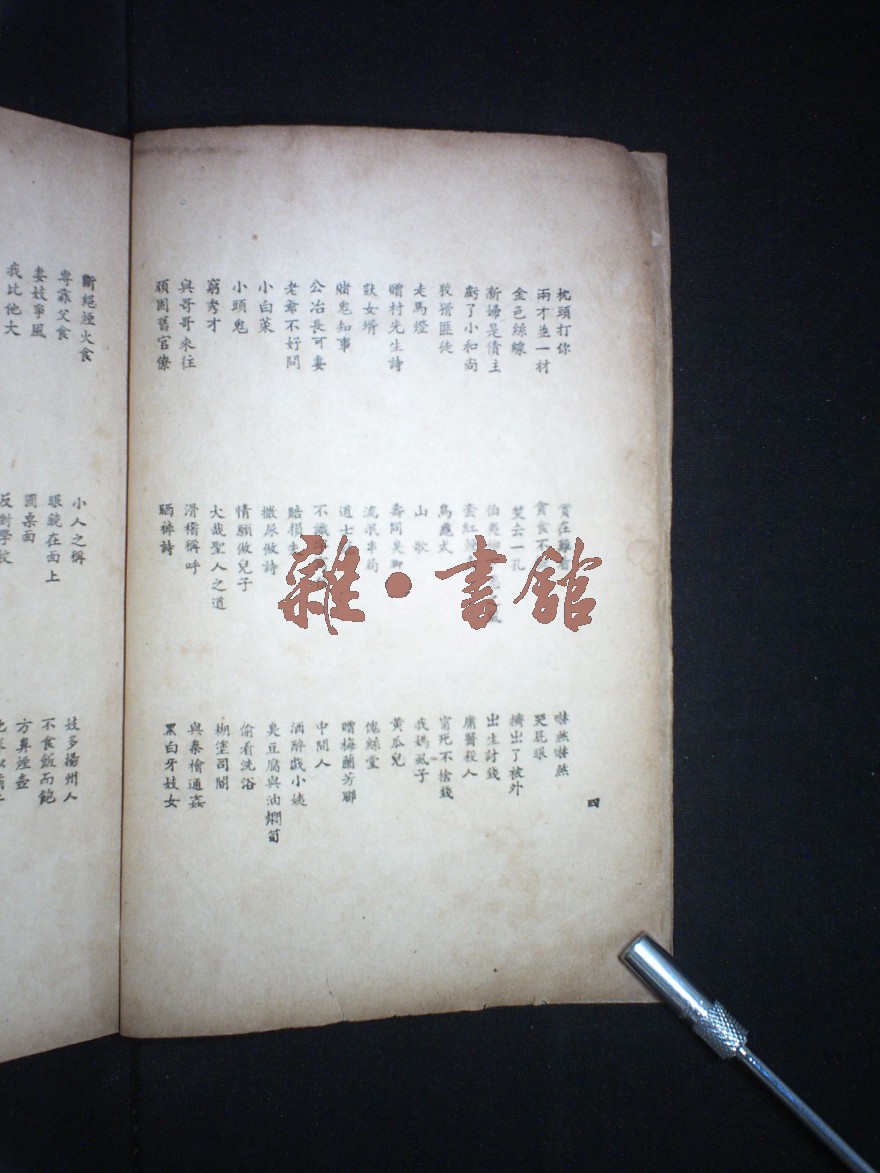 枕頭打你
兩才並一材
金色絲線
新婦是債主
虧了小和尚
狡猾匪徒
走馬燈
贈村先生詩
獃女壻
賭鬼知事
公冶長可妻
老爺不好問
小白菜
小頭鬼
窮秀才
與哥哥來往
頑固舊官僚
貪食不
焚去一孔
伯夷
烏龜式
山歌
壽同吳卿
流氓串局
道士
不識
賠損
撒尿做詩
情願做兒子
大哉聖人之道
滑稽稱呼
晒褲詩
嚇煞嚇煞
哭屁眼
擠出了被外
出生討錢
庸醫殺人
甯死不捨錢
我媽虱子
黃瓜兒
倦絲堂
贈梅蘭芳聯
中間人
酒醉戲小姨
臭豆腐與油燜筍
偷看洗浴
糊塗司閽
與秦檜通姦
黑白牙妓女
四
斷絕煙火食
專靠父食
妻妓爭風
我比他大
小人之稱
眼鏡在面上
圓桌面
反對學校
妓多揚州人
不食飯而飽
方鼻煙壺
雜·書館